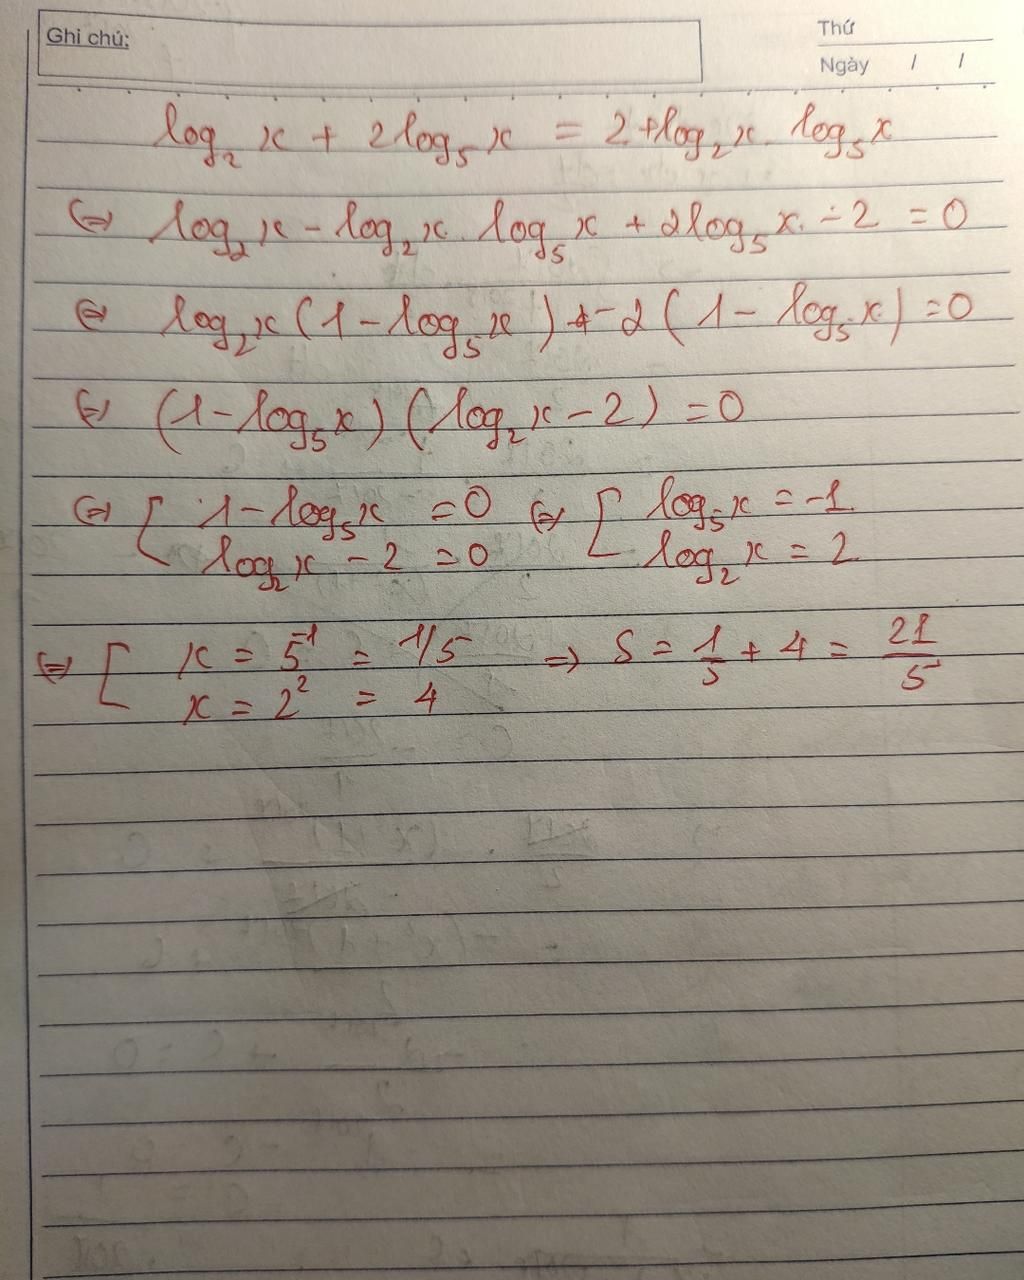 Ghi chú:
Thứ
Ngày / /
log₂ x + 2log₅ x = 2 + log₂ x . log₅ x
⇔ log₂ x - log₂ x . log₅ x + 2log₅ x - 2 = 0
⇔ log₂ x (1 - log₅ x) - 2 (1 - log₅ x) = 0
⇔ (1 - log₅ x) (log₂ x - 2) = 0
⇔ [ 1 - log₅ x = 0 ⇔ [ log₅ x = -1
log₂ x - 2 = 0 log₂ x = 2
⇔ [ x = 5⁻¹ = 1/5 ⇒ S = 1/5 + 4 = 21/5
x = 2² = 4